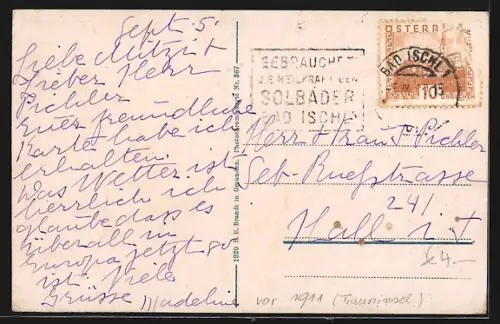 Sept 5.
Liebe Mitzi t
Lieber Herr
Pichler
Euer freundliche
Karte habe ich
erhalten.
Das Wetter ist
herrlich ich
glaube dass es
überall in
Europa jetzt so
ist. Viele
Grüsse Madeline
1920 R. E. Brandt in Gmunden.
GEBRAUCHET
DIE HEILKRAFT DER
SOLBÄDER
BAD ISCHL
ÖSTERR
BAD ISCHL 1
10
Herr + Frau Pichler
Seb. Ruefstrasse
24/
Hall i. T
€4.-
vor 1911 (Trauninsel)